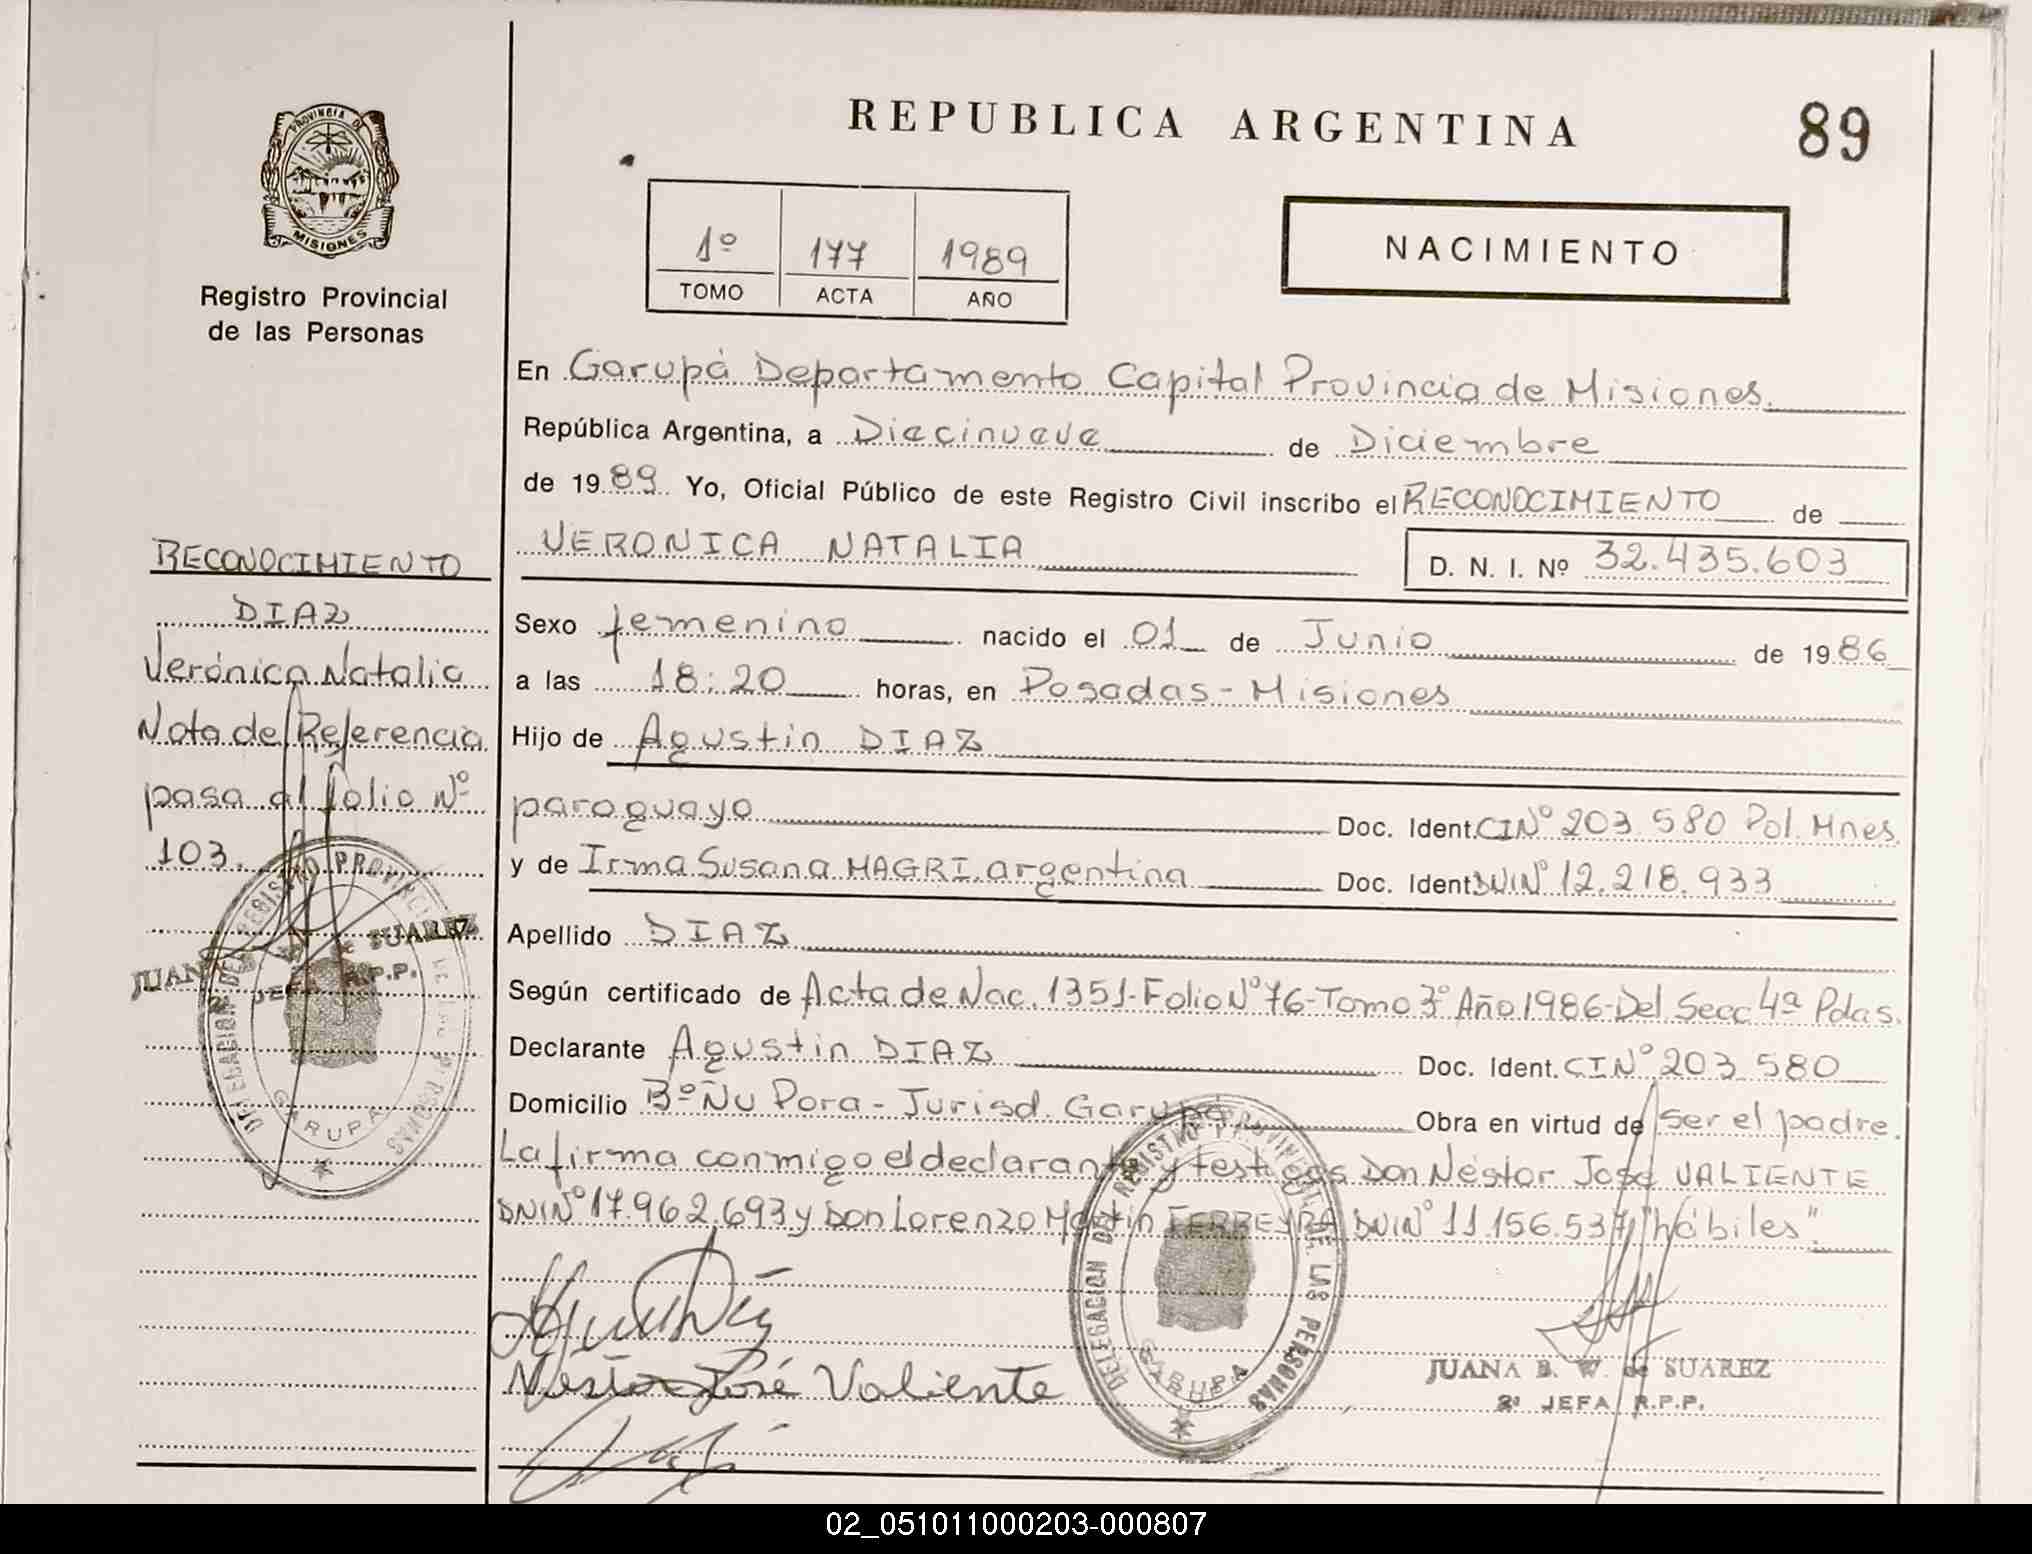 REPUBLICA ARGENTINA
89
PROVINCIA DE
MISIONES
Registro Provincial
de las Personas
1º 177 1989
TOMO ACTA AÑO
NACIMIENTO
En Garupá Departamento Capital Provincia de Misiones.
República Argentina, a Diecinueve de Diciembre
de 1989. Yo, Oficial Público de este Registro Civil inscribo el RECONOCIMIENTO de
VERONICA NATALIA
D. N. I. Nº 32.435.603
Sexo femenino nacido el 01 de Junio de 1986
a las 18:20 horas, en Posadas - Misiones
Hijo de Agustin DIAZ
paraguayo Doc. Ident. CINº 203.580 Pol. Mnes.
y de Irma Susana MAGRI. argentina Doc. Ident DNINº 12.218.933
Apellido DIAZ
Según certificado de Acta de Nac. 1351-Folio Nº 76-Tomo 3º Año 1986-Del Secc 4ª Pdas.
Declarante Agustin DIAZ Doc. Ident. CINº 203.580
Domicilio Bº Ñu Pora - Jurisd. Garupá Obra en virtud de ser el padre.
La firma conmigo el declarante y testigos Don Néstor José VALIENTE
DNINº 17.962.693 y Don Lorenzo Martin FERREYRA DNINº 11.156.537 "hábiles".
Néstor José Valiente
DELEGACION DEL REGISTRO PROVINCIAL DE LAS PERSONAS
GARUPA
JUANA B. W. de SUAREZ
2ª JEFA R.P.P.
RECONOCIMIENTO
DIAZ
Verónica Natalia
Nota de Referencia
pasa al folio Nº
103.
DELEGACION DEL REGISTRO PROVINCIAL DE LAS PERSONAS
GARUPA
JUANA de SUAREZ
JEFA R.P.P.
02_051011000203-000807